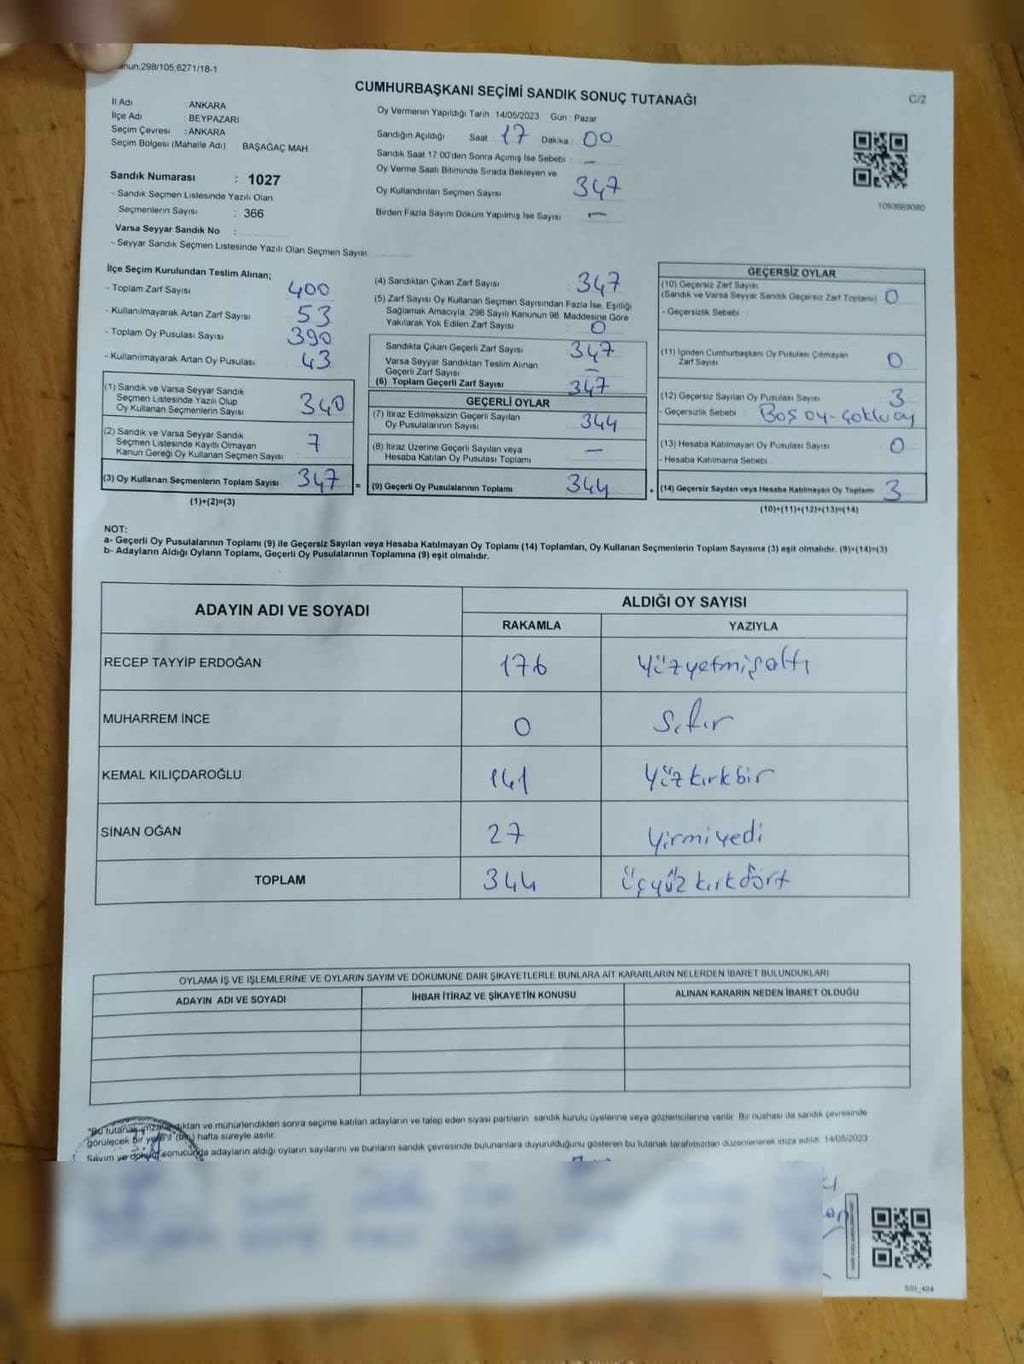 298/105,6271/18-1
CUMHURBAŞKANI SEÇİMİ SANDIK SONUÇ TUTANAĞI
C/2
İl Adı ANKARA
İlçe Adı : BEYPAZARI
Seçim Çevresi : ANKARA
Seçim Bölgesi (Mahalle Adı) BAŞAĞAÇ MAH
Sandık Numarası : 1027
- Sandık Seçmen Listesinde Yazılı Olan
Seçmenlerin Sayısı : 366
Varsa Seyyar Sandık No :
- Seyyar Sandık Seçmen Listesinde Yazılı Olan Seçmen Sayısı
Oy Vermenin Yapıldığı Tarih 14/05/2023 Gün : Pazar
Sandığın Açıldığı Saat 17 Dakika : 00
Sandık Saat 17:00'den Sonra Açımış İse Sebebi : -
Oy Verme Saati Bitiminde Sırada Bekleyen ve
Oy Kullandırılan Seçmen Sayısı 347
Birden Fazla Sayım Döküm Yapılmış İse Sayısı -
İlçe Seçim Kurulundan Teslim Alınan;
- Toplam Zarf Sayısı 400
- Kullanılmayarak Artan Zarf Sayısı 53
- Toplam Oy Pusulası Sayısı 390
- Kullanılmayarak Artan Oy Pusulası 43
(1) Sandık ve Varsa Seyyar Sandık
Seçmen Listesinde Yazılı Olup
Oy Kullanan Seçmenlerin Sayısı 340
(2) Sandık ve Varsa Seyyar Sandık
Seçmen Listesinde Kayıtlı Olmayan
Kanun Gereği Oy Kullanan Seçmen Sayısı : 7
(3) Oy Kullanan Seçmenlerin Toplam Sayısı 347 =
(1)+(2)=(3)
(4) Sandıktan Çıkan Zarf Sayısı 347
(5) Zarf Sayısı Oy Kullanan Seçmen Sayısından Fazla İse, Eşitliği
Sağlamak Amacıyla, 298 Sayılı Kanunun 98. Maddesine Göre
Yakılarak Yok Edilen Zarf Sayısı 0
Sandıkta Çıkan Geçerli Zarf Sayısı 347
Varsa Seyyar Sandıktan Teslim Alınan
Geçerli Zarf Sayısı -
(6) Toplam Geçerli Zarf Sayısı 347
GEÇERLİ OYLAR
(7) İtiraz Edilmeksizin Geçerli Sayılan
Oy Pusulalarının Sayısı 344
(8) İtiraz Üzerine Geçerli Sayılan veya
Hesaba Katılan Oy Pusulası Toplamı -
(9) Geçerli Oy Pusulalarının Toplamı 344 +
GEÇERSİZ OYLAR
(10) Geçersiz Zarf Sayısı
(Sandık ve Varsa Seyyar Sandık Geçersiz Zarf Toplamı) 0
- Geçersizlik Sebebi
(11) İçinden Cumhurbaşkanı Oy Pusulası Çıkmayan
Zarf Sayısı 0
(12) Geçersiz Sayılan Oy Pusulası Sayısı 3
- Geçersizlik Sebebi : Boş oy-çoklu oy
(13) Hesaba Katılmayan Oy Pusulası Sayısı 0
- Hesaba Katılmama Sebebi
(14) Geçersiz Sayılan veya Hesaba Katılmayan Oy Toplamı 3
(10)+(11)+(12)+(13)=(14)
NOT:
a- Geçerli Oy Pusulalarının Toplamı (9) ile Geçersiz Sayılan veya Hesaba Katılmayan Oy Toplamı (14) Toplamları, Oy Kullanan Seçmenlerin Toplam Sayısına (3) eşit olmalıdır. (9)+(14)=(3)
b- Adayların Aldığı Oyların Toplamı, Geçerli Oy Pusulalarının Toplamına (9) eşit olmalıdır.
ADAYIN ADI VE SOYADI ALDIĞI OY SAYISI
RAKAMLA YAZIYLA
RECEP TAYYİP ERDOĞAN 176 Yüzyetmişaltı
MUHARREM İNCE 0 Sıfır
KEMAL KILIÇDAROĞLU 141 Yüzkırkbir
SİNAN OĞAN 27 Yirmiyedi
TOPLAM 344 Üçyüzkırkdört
OYLAMA İŞ VE İŞLEMLERİNE VE OYLARIN SAYIM VE DÖKÜMÜNE DAİR ŞİKAYETLERLE BUNLARA AİT KARARLARIN NELERDEN İBARET BULUNDUKLARI
ADAYIN ADI VE SOYADI İHBAR İTİRAZ VE ŞİKAYETİN KONUSU ALINAN KARARIN NEDEN İBARET OLDUĞU
"Bu tutanak ve mühürlendikten sonra seçime katılan adayların ve talep eden siyasi partilerin sandık kurulu üyelerine veya gözlemcilerine verilir. Bir nüshası da sandık çevresinde
görülecek bir yere (bir) hafta süreyle asılır.
Sayım ve döküm sonucunda adayların aldığı oyların sayılarını ve bunların sandık çevresinde bulunanlara duyurulduğunu gösteren bu tutanak tarafımızdan düzenlenerek imza edildi. 14/05/2023